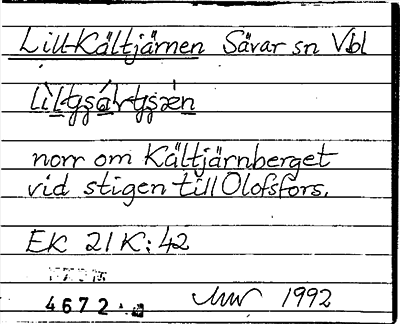 Lill-Kältjärnen Sävar sn Vbl
norr om Kältjärnberget
vid stigen till Olofsfors.
EK 21K:42
4672
1992